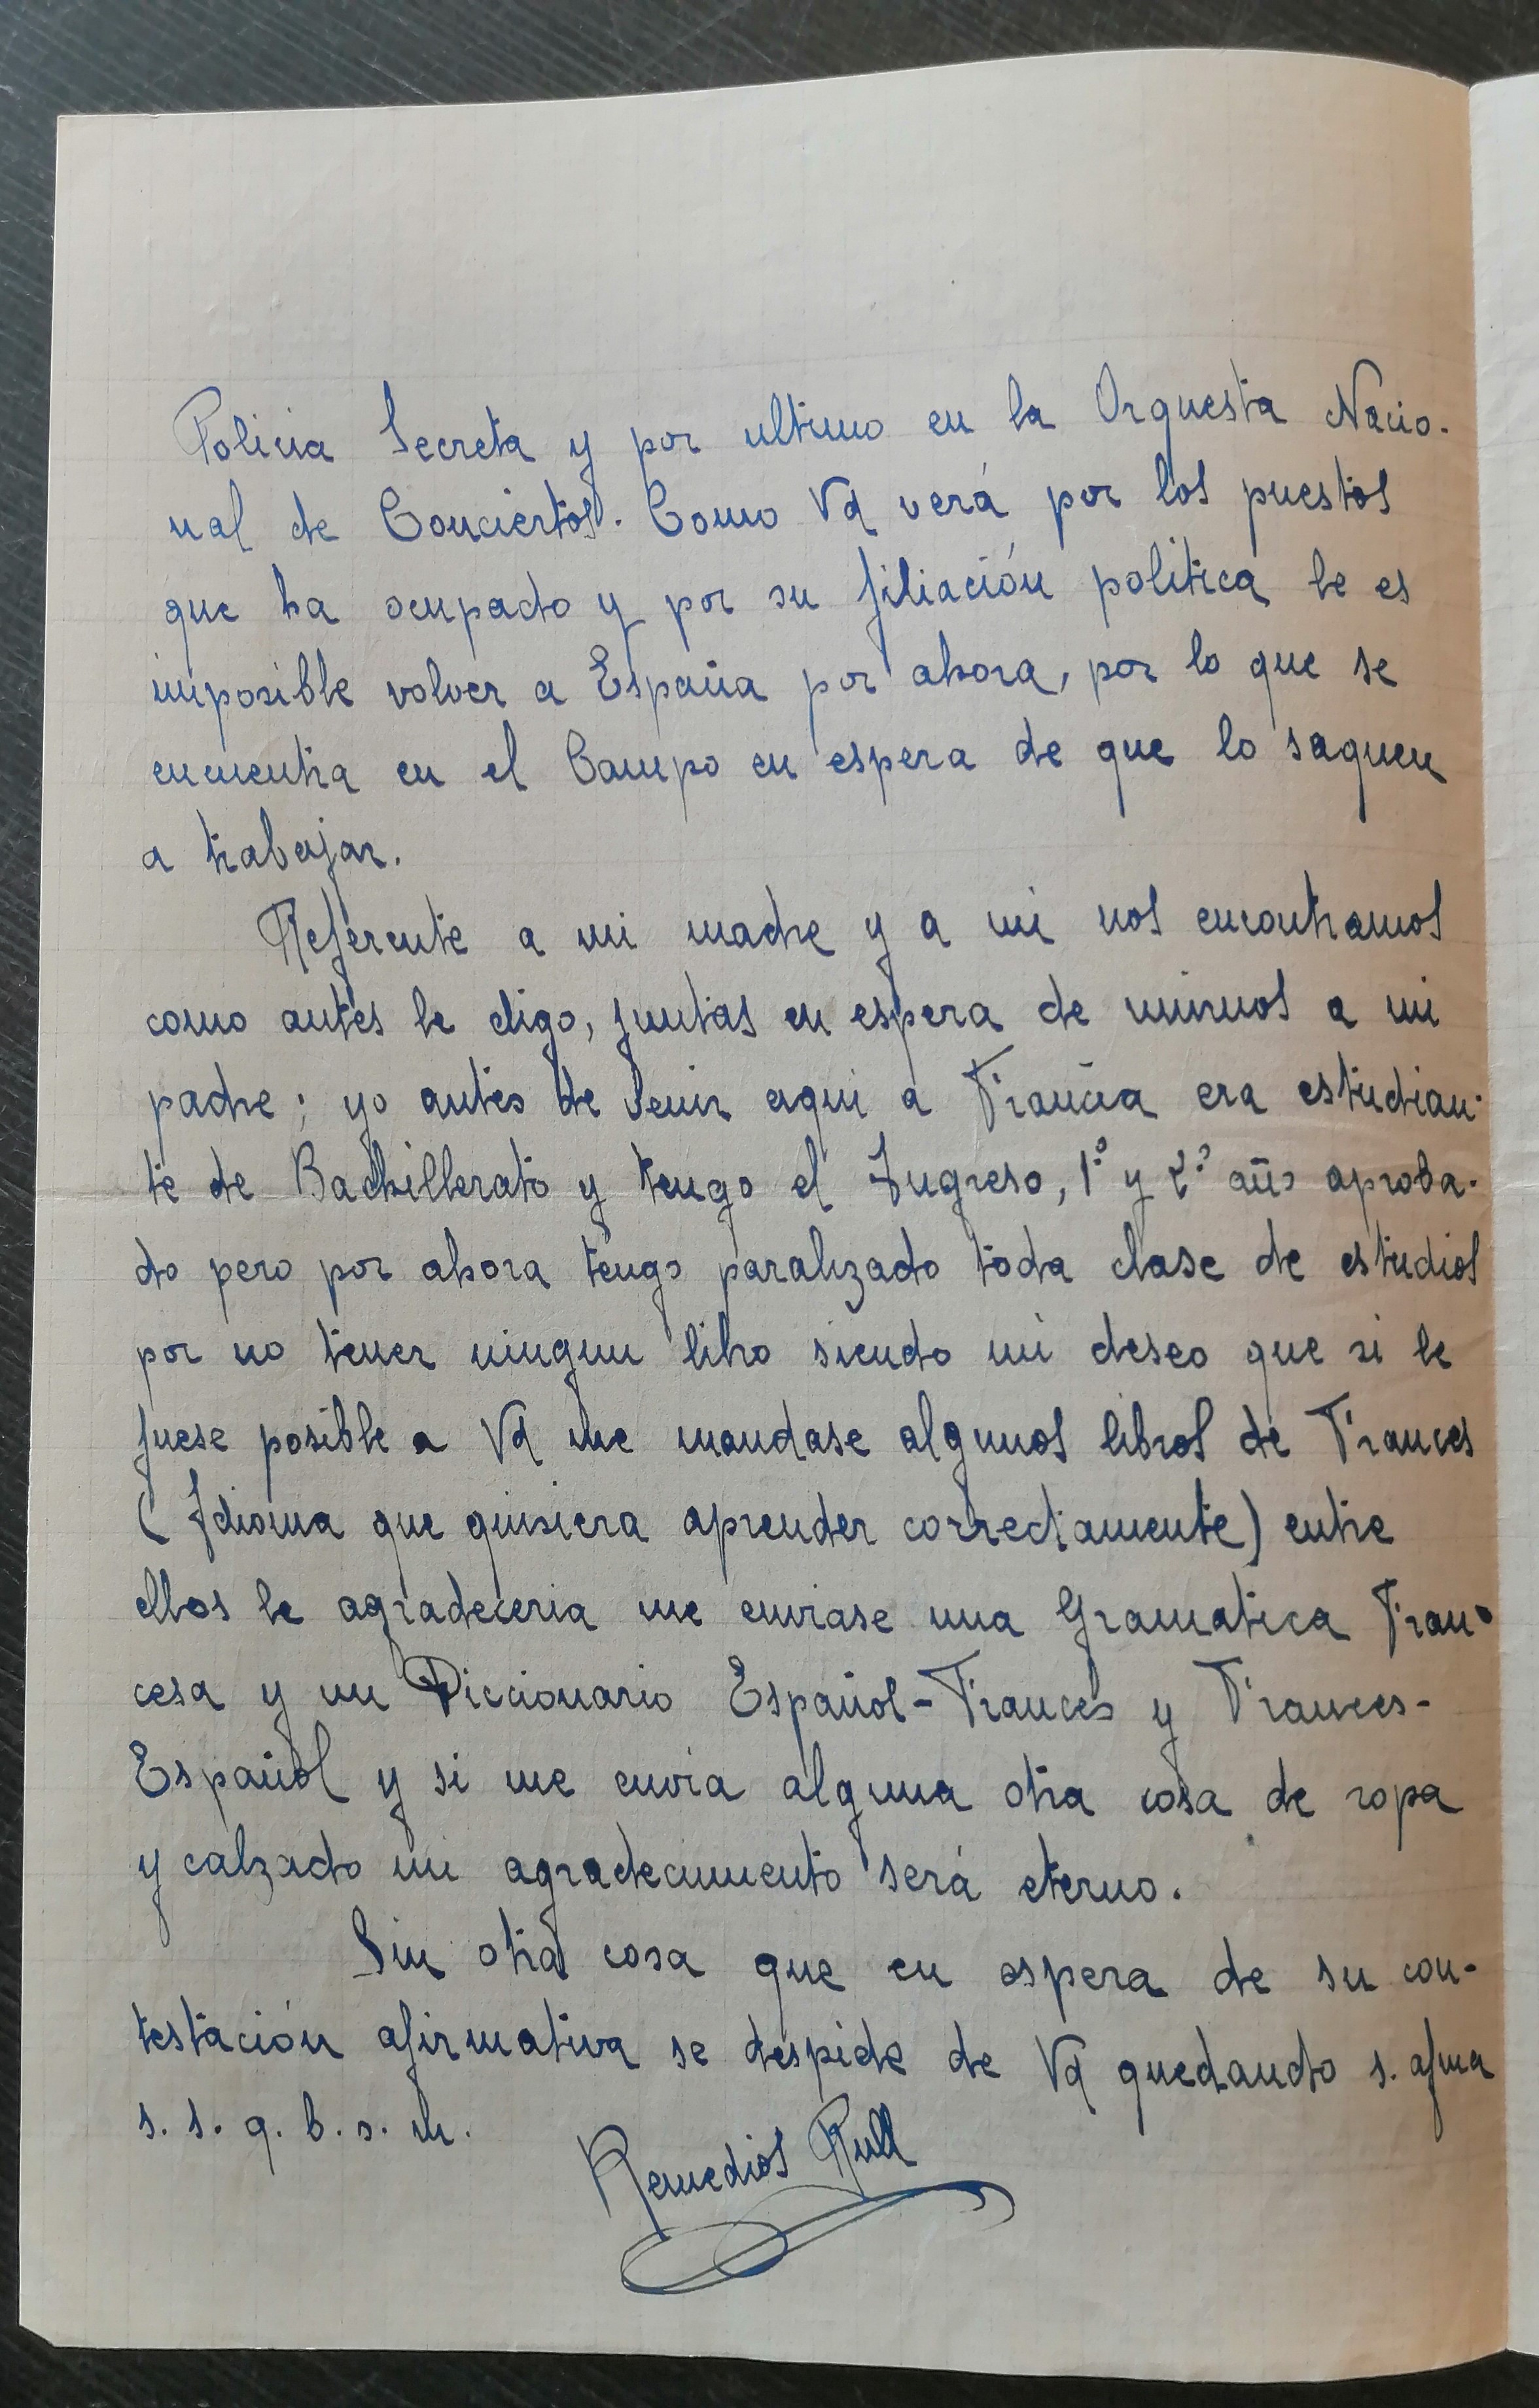 Policia Secreta y por ultimo en la Orquesta Nacio-
nal de Conciertos. Como Vd verá por los puestos
que ha ocupado y por su filiación politica le es
imposible volver a España por ahora, por lo que se
encuentra en el Campo en espera de que lo saquen
a trabajar.
Referente a mi madre y a mi nos encontramos
como antes le digo, juntas en espera de unirnos a mi
padre; yo antes de venir aqui a Francia era estudian-
te de Bachillerato y tengo el Ingreso, 1º y 2º año aproba-
do pero por ahora tengo paralizado toda clase de estudios
por no tener ningun libro siendo mi deseo que si le
fuese posible a Vd me mandase algunos libros de Frances
(Idioma que quisiera aprender correctamente) entre
ellos le agradeceria me enviase una Gramatica Fran-
cesa y un Diccionario Español-Frances y Frances-
Español y si me envia alguna otra cosa de ropa
y calzado mi agradecimiento será eterno.
Sin otra cosa que en espera de su con-
testación afirmativa se despide de Vd quedando s. afma
s. s. q. b. s. m.
Remedios Rull